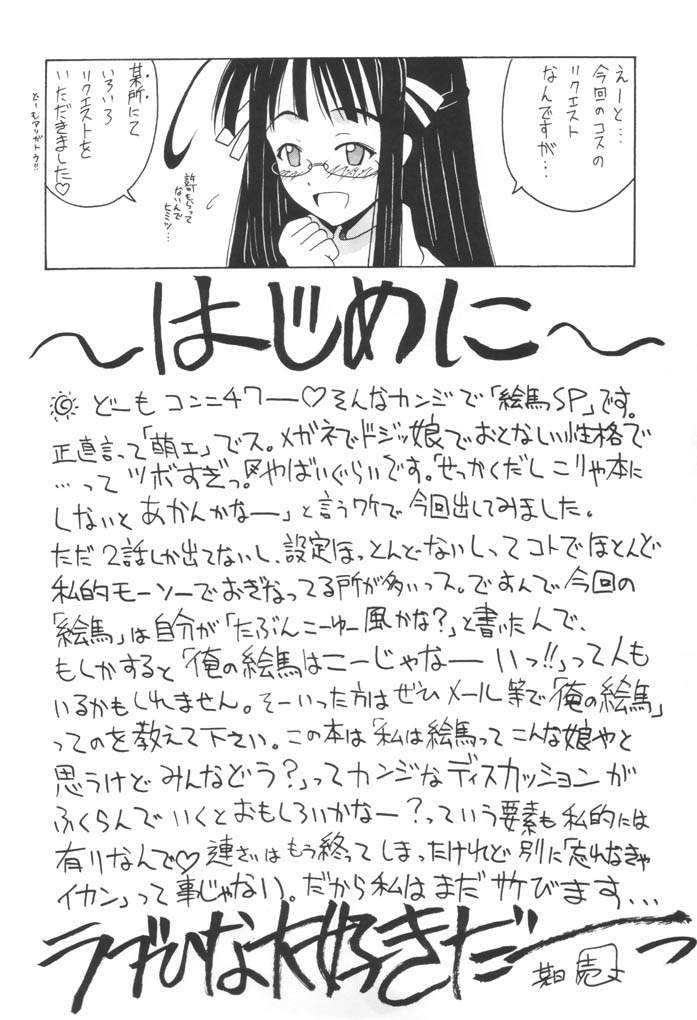 えーと…
今回のコスの
リクエスト
なんですが…
某所にて
いろいろ
リクエストを
いただきました♡
どーもアリガトウ!!
許可もらって
ないんで
ヒミツ…
～はじめに～
どーもコンニチワー♡そんなカンジで「絵馬SP」です。
正直言って「萌エ」でス。メガネでドジッ娘でおとなしい性格で
…ってツボすぎっ〆やばいぐらいです。「せっかくだしこりゃ本に
しないとあかんかなー」と言うワケで今回出してみました。
ただ2話しか出てないし、設定ほっとんどないしってコトでほとんど
私的モーソーでおぎなってる所が多いっス。ですんで今回の
「絵馬」は自分が「たぶんこーゆー風かな?」と書いたんで、
もしかすると「俺の絵馬はこーじゃなーいっ!!」って人も
いるかもしれません。そーいった方はぜひメール等で「俺の絵馬」
ってのを教えて下さい。この本は「私は絵馬ってこんな娘やと
思うけどみんなどう?」ってカンジなディスカッションが
ふくらんでいくとおもしろいかなー?っていう要素も私的には
有りなんで♡連さいはもう終ってしまったけれど別に「忘れなきゃ
イカン」って事じゃない。だから私はまだサケびます...
ラブひな大好きだーっ